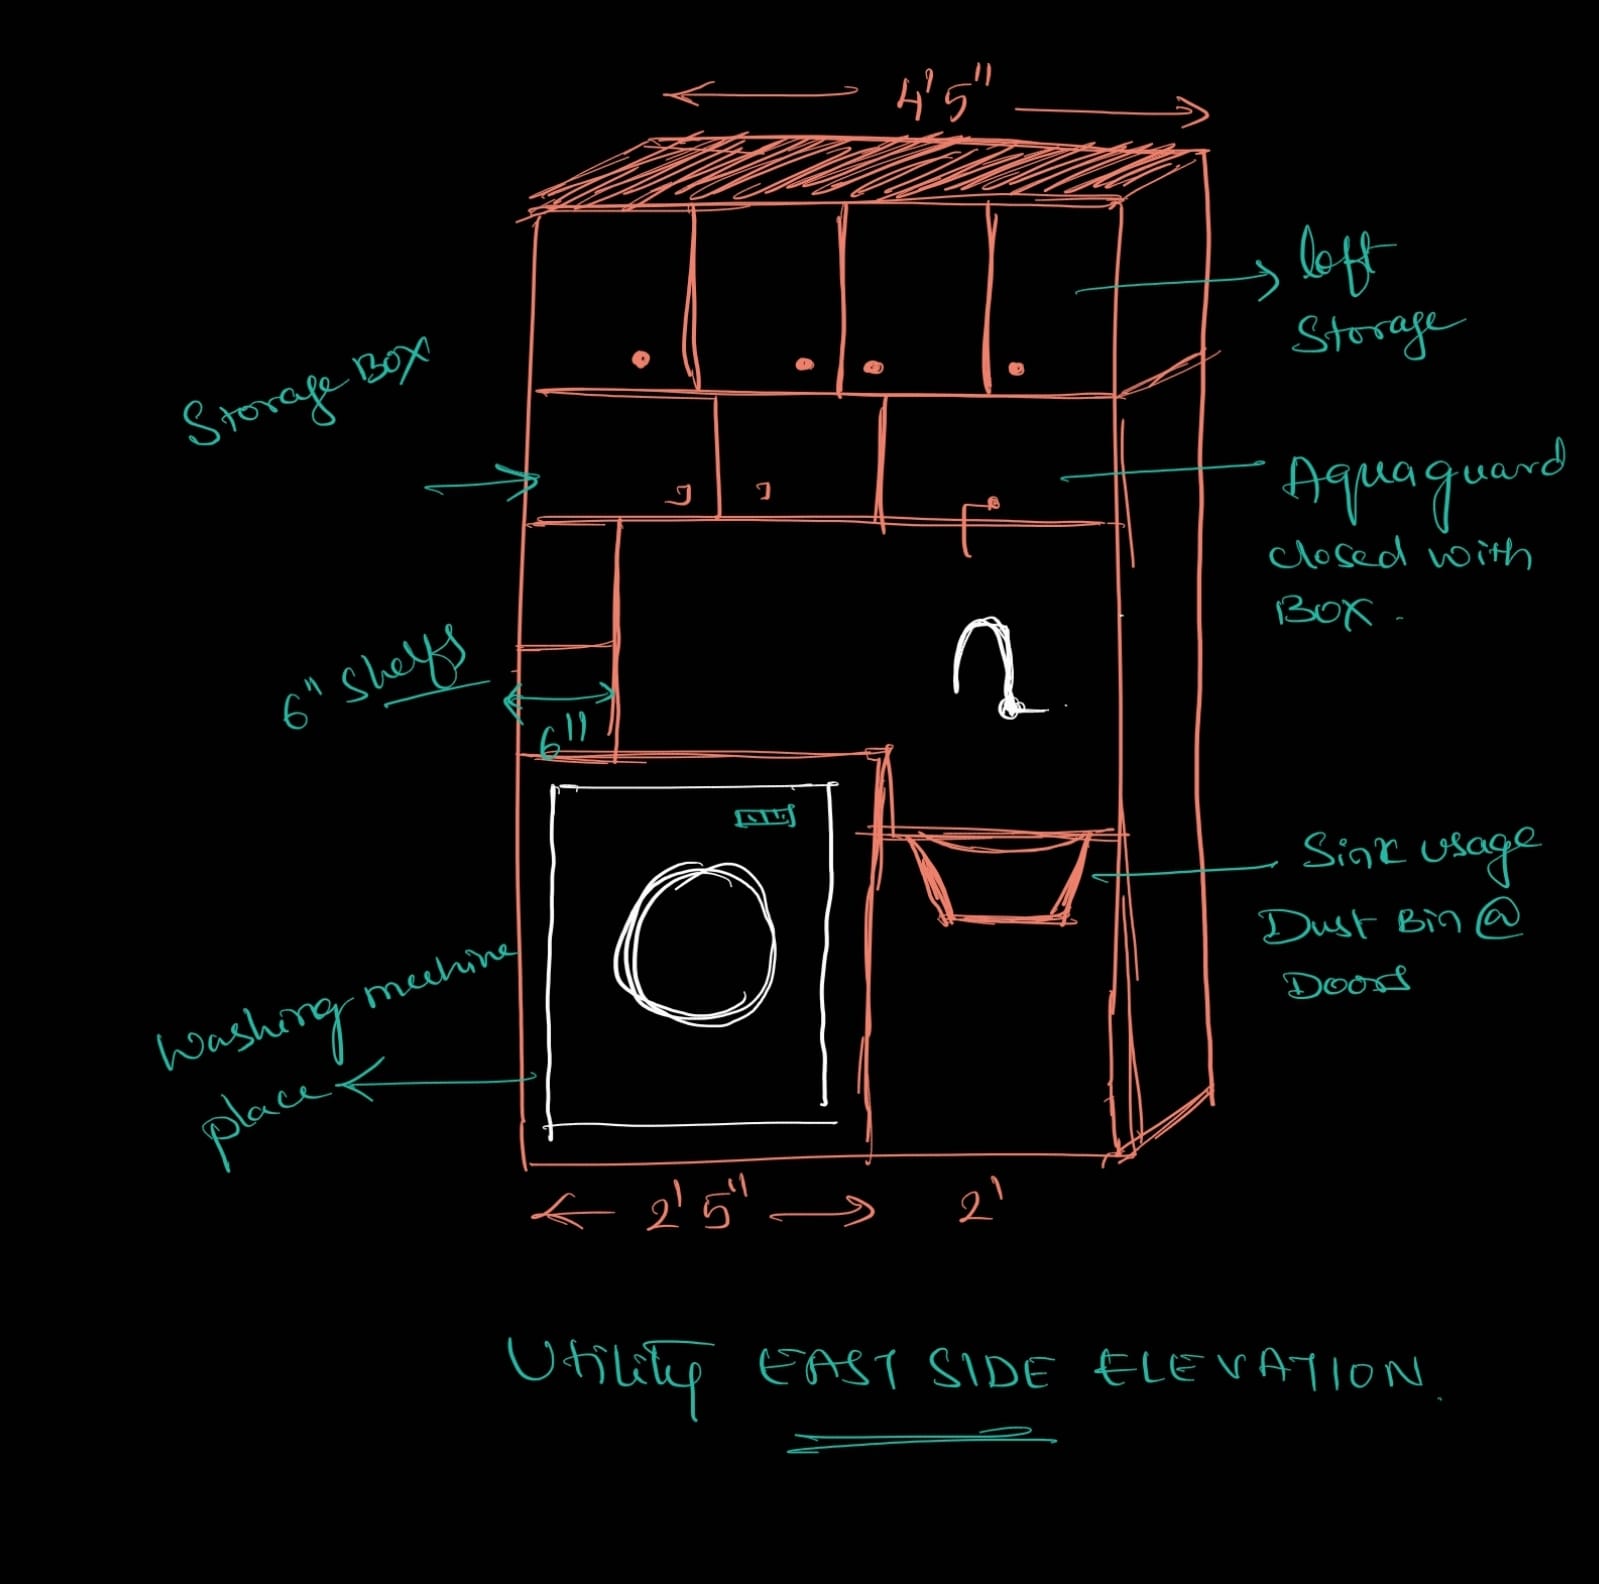 4' 5"
loft
Storage
Storage BOX
Aquaguard
closed with
BOX.
6" Shelfs
6"
Sink usage
Dust Bin @
Doors
Washing mechine
place
2' 5"
2'
Utility EAST SIDE ELEVATION.